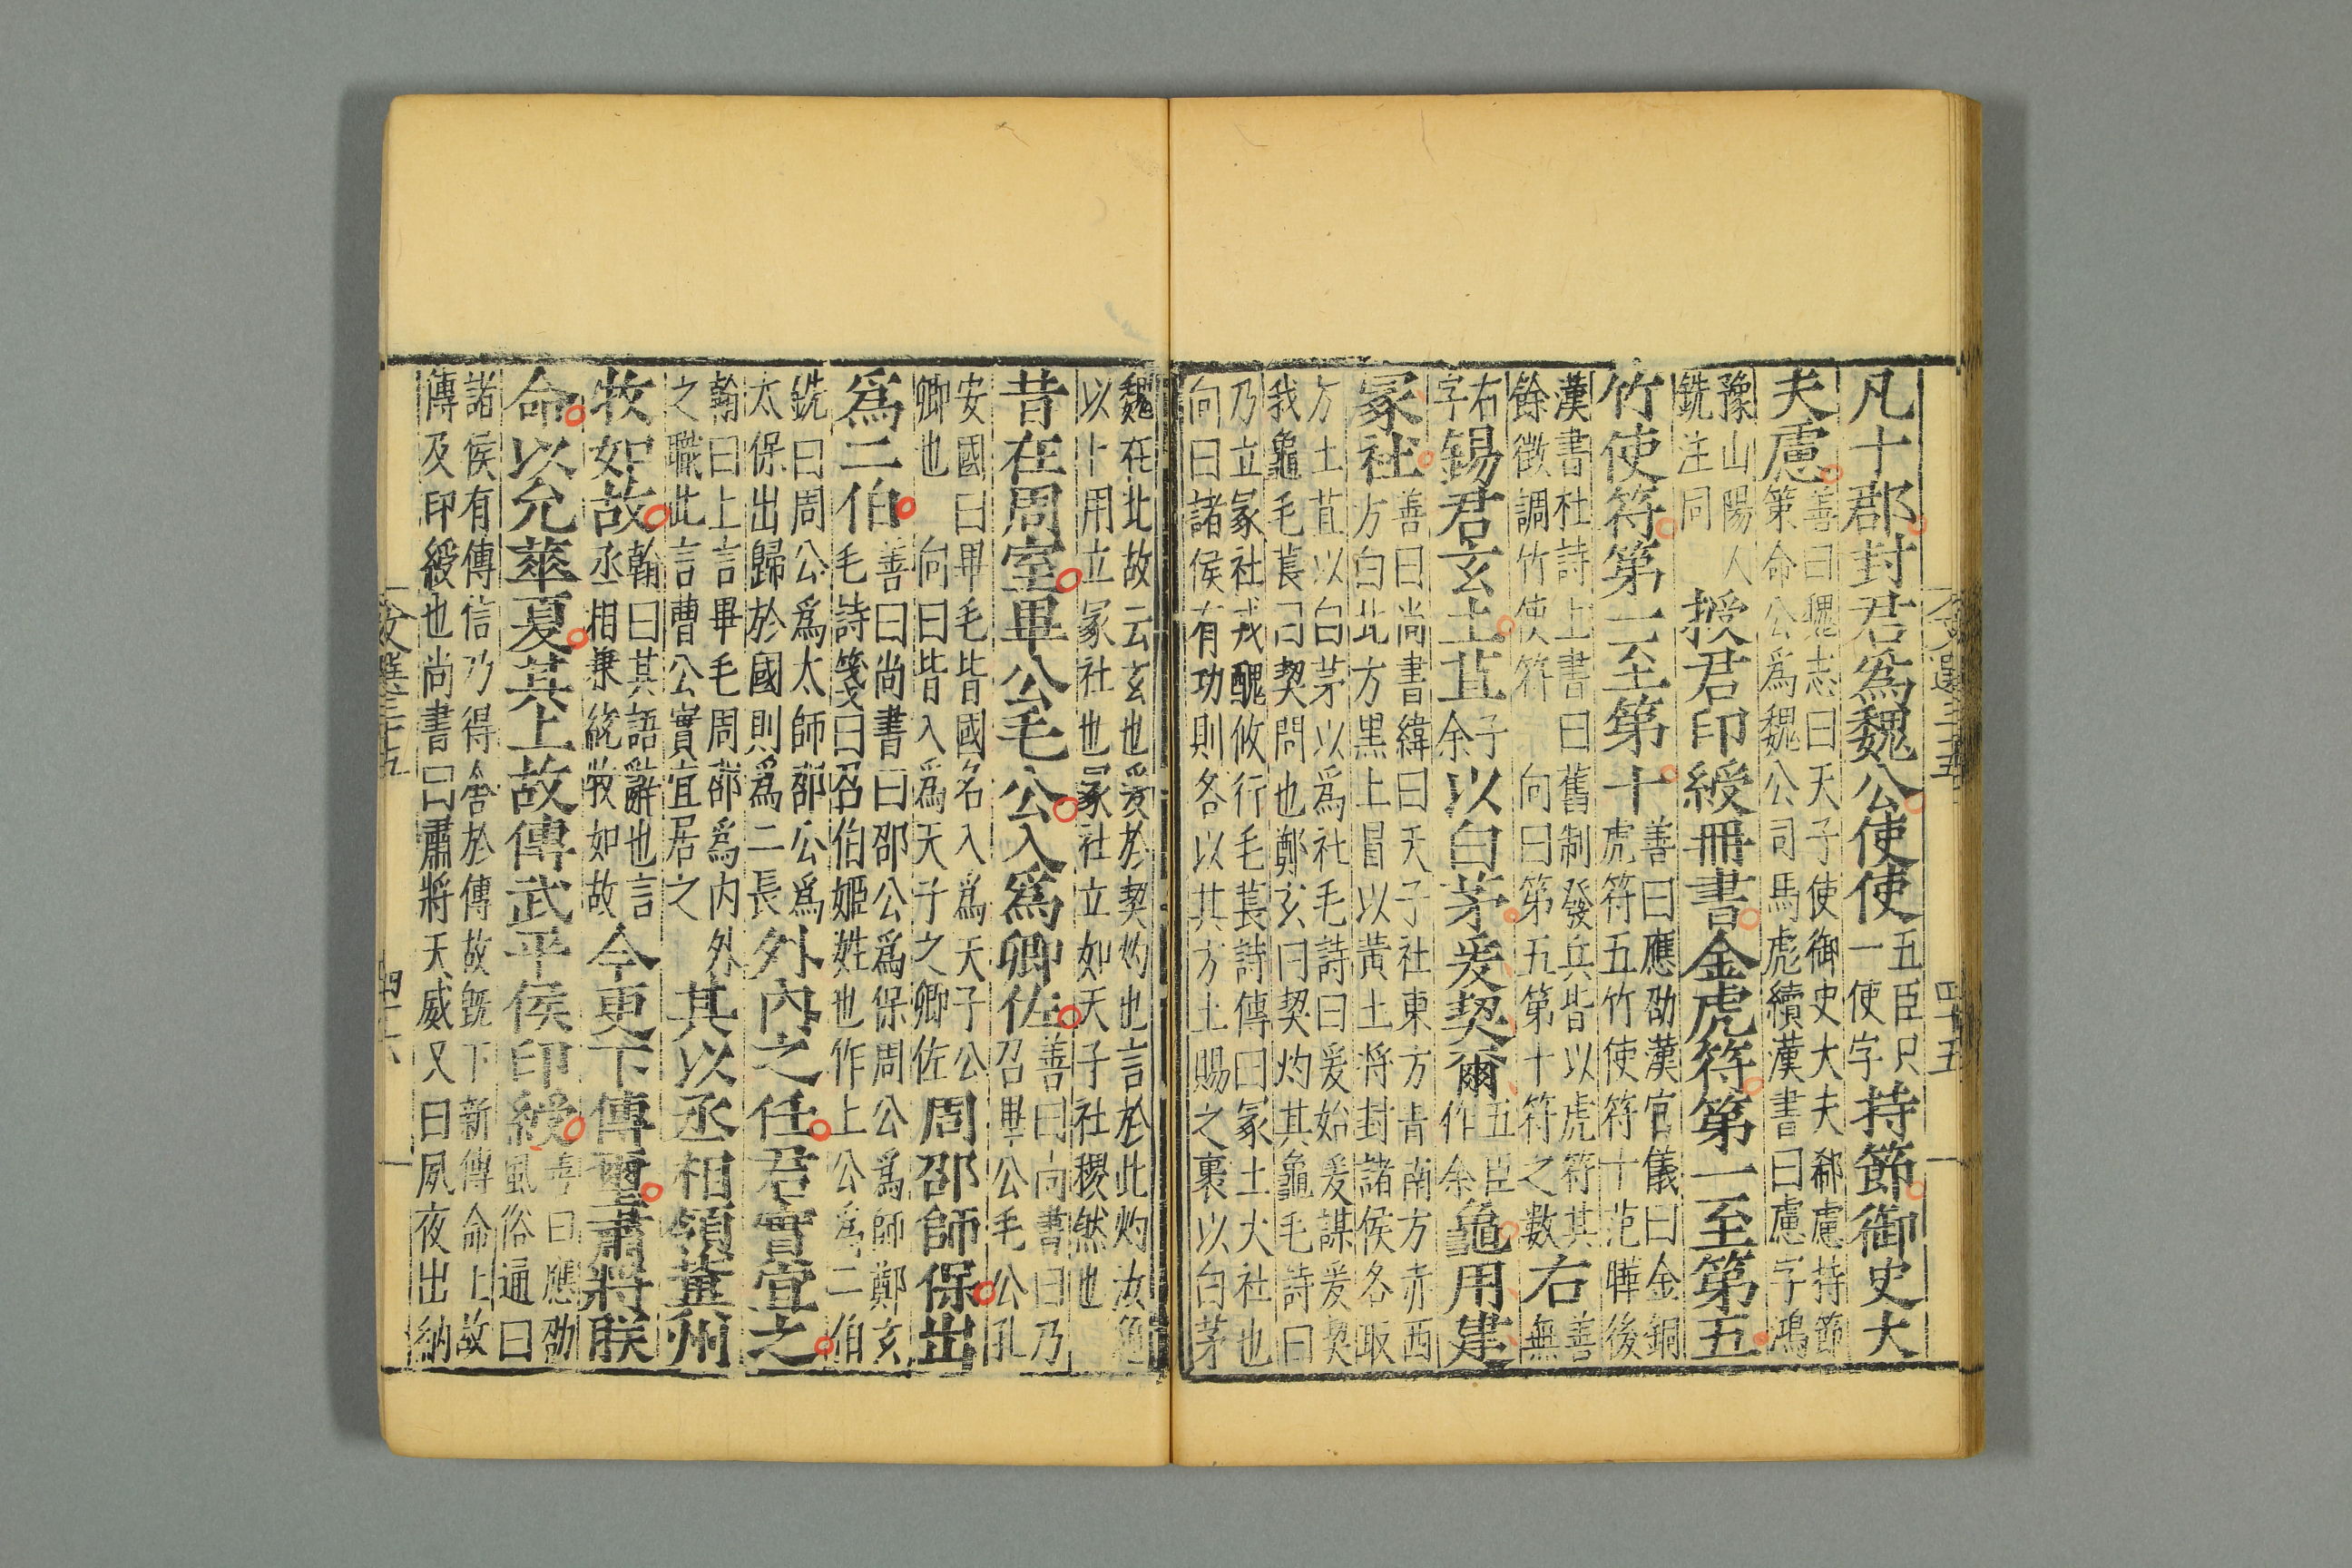 凡十郡封君爲魏公使使五臣只一使字持節御史大
夫慮善曰魏志曰天子使御史大夫郗慮持節策命公爲魏公司馬彪續漢書曰慮字鴻
豫山陽人銑注同授君印綬冊書金虎符第一至第五
竹使符第一至第十善曰應劭漢官儀曰金銅虎符五竹使符十范曄後
漢書杜詩上書曰舊制發兵皆以虎符其餘徵調竹使符向曰第五第十符之數右善無
右字錫君玄土苴子余以白茅爰契爾五臣作余龜用建
冢社善曰尚書緯曰天子社東方青南方赤西方白北方黑上冒以黃土將封諸侯各取
方土苴以白茅以爲社毛詩曰爰始爰謀爰契我龜毛萇曰契問也鄭玄曰契灼其龜毛詩曰
乃立冢社戎醜攸行毛萇詩傳曰冢土大社也向曰諸侯有功則各以其方土賜之裹以白茅
魏在北故云玄也爰於契灼也言於此灼汝龜以卜用立冢社也冢社立如天子社稷然也
昔在周室畢公毛公入爲卿佐善曰向書曰乃召畢公毛公孔
安國曰畢毛皆國名入爲天子公卿也向曰皆入爲天子之卿佐周邵師保出
爲二伯善曰尚書曰邵公爲保周公爲師鄭玄毛詩箋曰召伯姬姓也作上公爲二伯
銑曰周公爲太師邵公爲太保出歸於國則爲二長外內之任君實宜之
翰曰上言畢毛周邵爲内外之職此言曹公實宜居之其以丞相領冀州
牧如故翰曰其語辭也言丞相兼統牧如故今更下傳璽肅將朕
命以允華夏其上故傳武平侯印綬善曰應劭風俗通曰
諸侯有傳信乃得舍於傳故既下新傳命上故傳及印綬也尚書曰肅將天威又曰夙夜出納
文選三十五
四十五
文選三十五
四十六